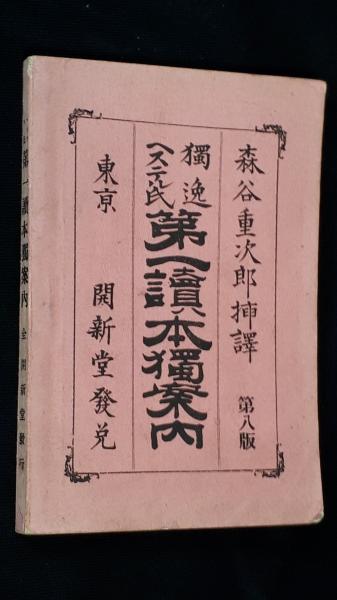 森谷重次郎挿譯
第八版
獨逸
ヘステル氏
第一讀本獨案內
東京
開新堂發兌
第一讀本獨案內 全 開新堂發行